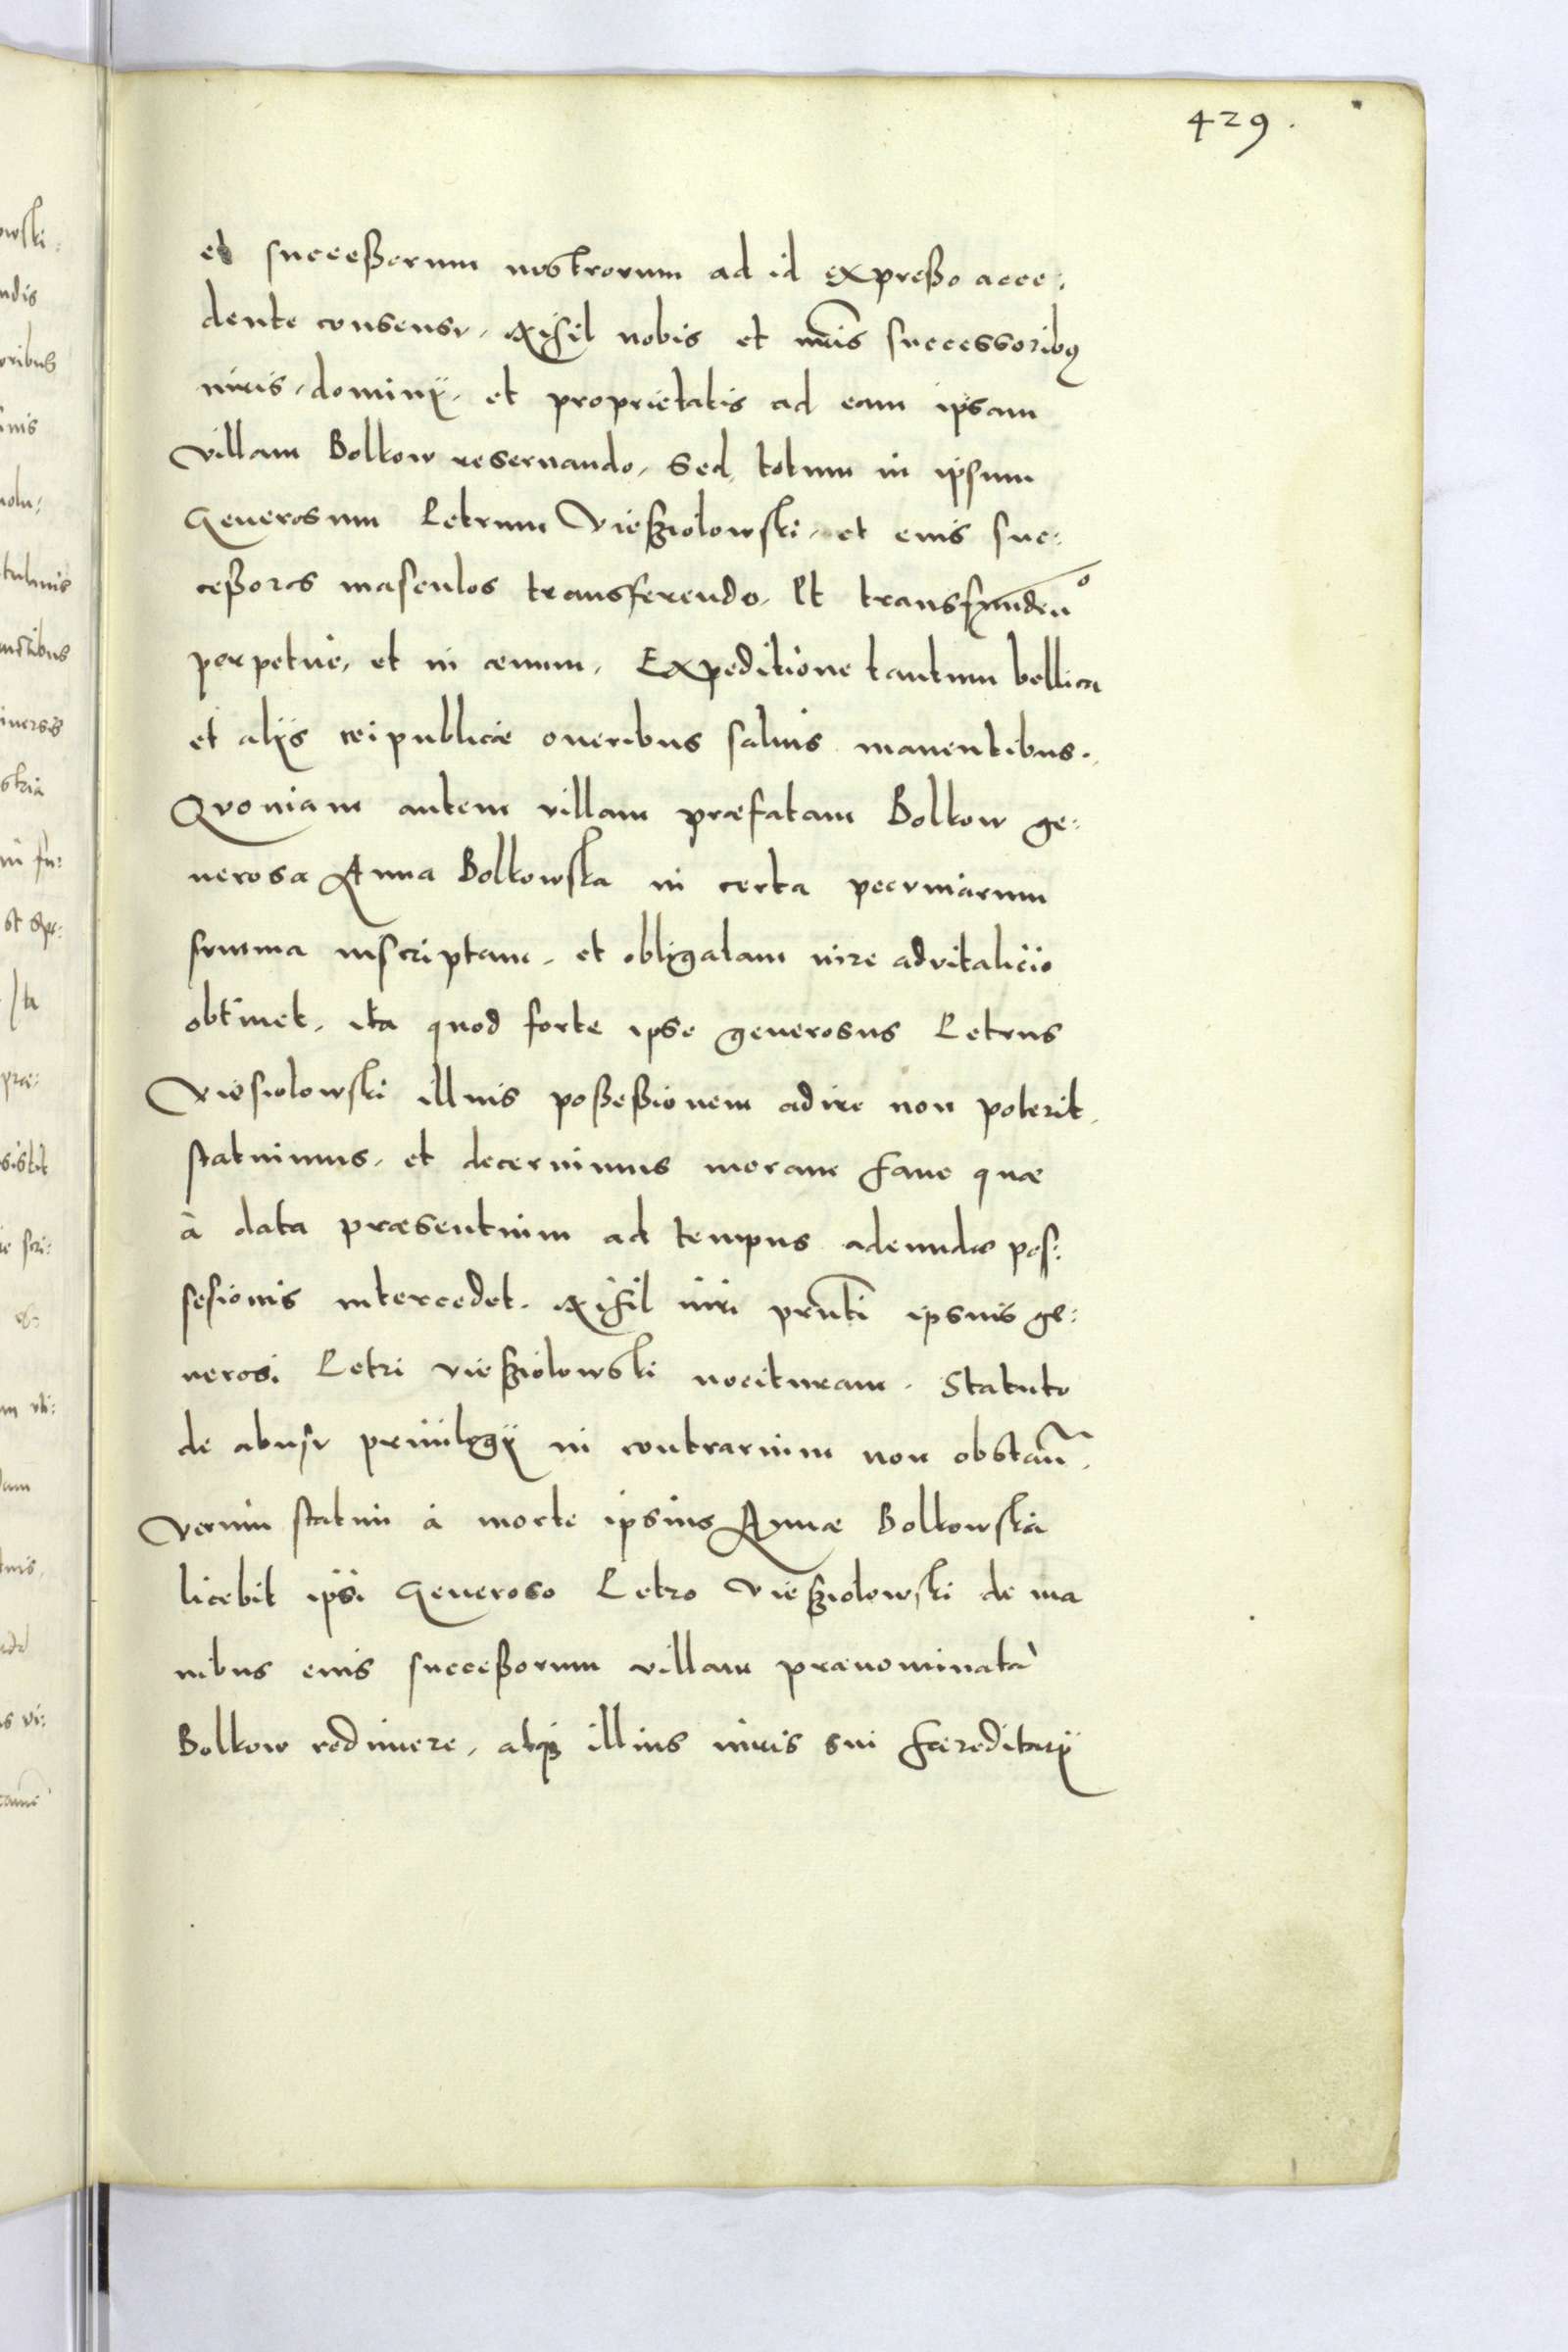 429.
et succeßorum nostrorum ad id expreßo acce:
dente consensu, Nihil nobis et nr̃is successoribq
iuris, dominij, et proprietatis ad eam ipsam
villam Bolkow reseruando, Sed, totum in ipsum
Generosum Petrum Vießiolowski, et eius suc:
ceßores masculos transferendo, Et transfundendo
perpetue, et in æuum, Expeditione tantum bellica
et alijs reipublicæ oneribus saluis manentibus.
Quoniam autem villam præfatam Bolkow ge:
nerosa Anna Bolkowska in certa pecuniarum
summa inscriptam, et obligatam iure aduitalicio
obtinet, ita quod forte ipse generosus Petrus
Viesiolowski illius poßeßionem adire non poterit,
statuimus, et decernimus moram hanc quæ
à data præsentium ad tempus adeundæ pos:
sesionis intercedet, Nihil iuri prñti ipsius ge:
nerosi Petri vießiolowski nocituram. Statuto
de abusu priuilegij in contrarium non obstañ.
Verum statim à morte ipsius Annæ Bolkowska
licebit ipsi Generoso Petro Vießiolowski de ma
nibus eius succeßorum villam prænominatã
Bolkow redimere, atq3 illius iuris sui hæreditarij